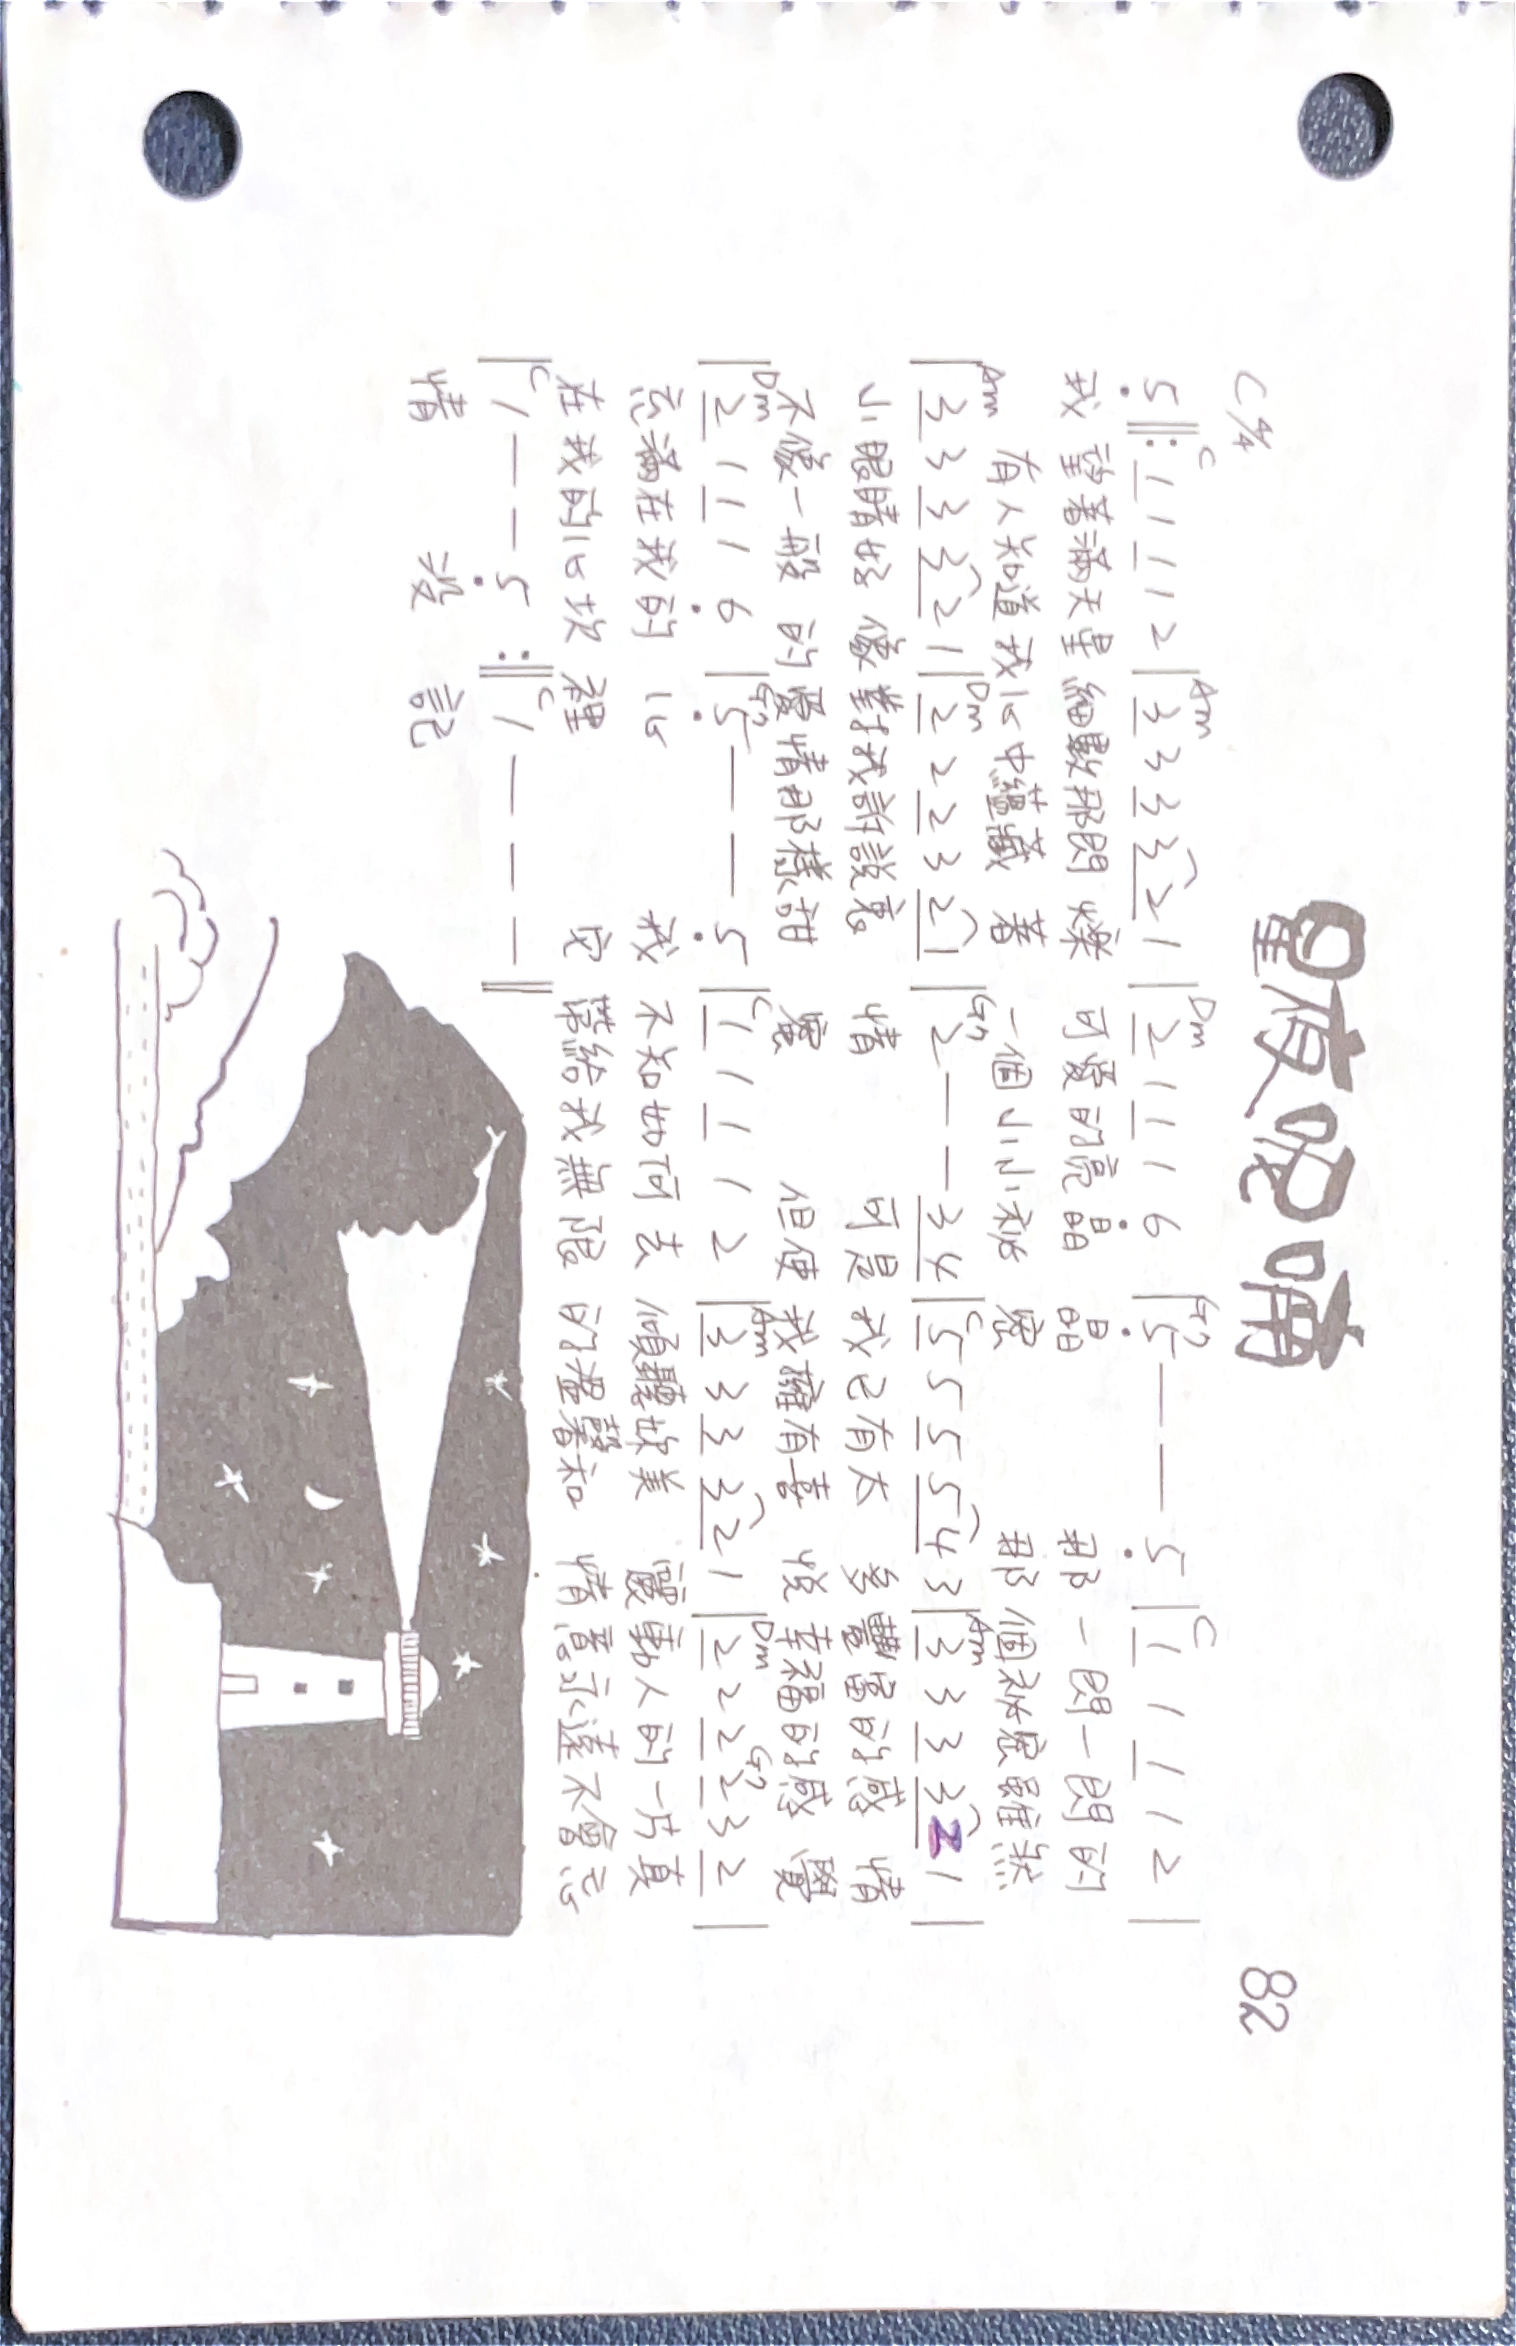 星夜呢喃
82
C 4/4
C Am Dm G7 C
5 ‖: 1 1 1 1 2 | 3 3 3 3 2 1 | 2 1 1 1 6 | 5 — — 5 | 1 1 1 1 2 |
我 望著滿天星 細數那閃 爍 可愛的亮晶 晶 那 一閃一閃的
有人知道我心中蘊藏 著 一個小小祕 密 那 個祕密雖然
Am Dm G7 C Am
| 3 3 3 3 2 1 | 2 2 2 3 2 1 | 2 — — 3 4 | 5 5 5 5 4 3 | 3 3 3 3 2 1 |
小眼睛好 像對我訴說衷 情 可是我已有太 多豐富的感 情
不像一般 的愛情那樣甜 蜜 但使我擁有喜 悅幸福的感 覺
Dm G7 C Am Dm G7
| 2 1 1 1 6 | 5 — — 5 | 1 1 1 1 2 | 3 3 3 3 2 1 | 2 2 2 2 3 2 |
充滿在我的 心 我 不知如何去 傾聽妳美 麗動人的一片真
在我的心坎 裡 它 帶給我無限 的溫馨和 情意永遠不會忘
C C
| 1 — — 5 :‖ 1 — — — ‖
情 沒 記